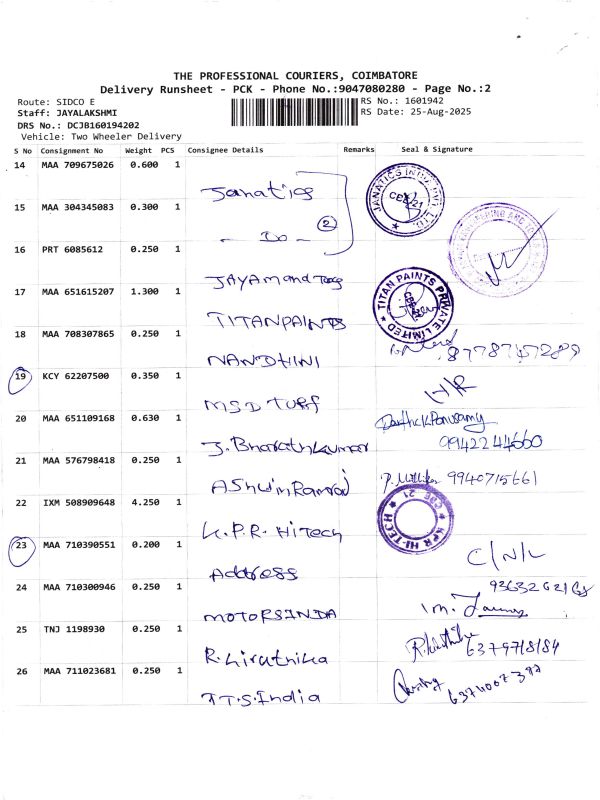 THE PROFESSIONAL COURIERS, COIMBATORE
Delivery Runsheet - PCK - Phone No.:9047080280 - Page No.:2
Route: SIDCO E
RS No.: 1601942
Staff: JAYALAKSHMI
RS Date: 25-Aug-2025
DRS No.: DCJB160194202
Vehicle: Two Wheeler Delivery
S No Consignment No Weight PCS Consignee Details Remarks Seal & Signature
14 MAA 709675026 0.600 1
Janatics
JANATICS INDIA PVT LTD.
15 MAA 304345083 0.300 1
- Do - 2
16 PRT 6085612 0.250 1
JAYAM and
17 MAA 651615207 1.300 1
TITAN PAINTS
TITAN PAINTS PRIVATE LIMITED
18 MAA 708307865 0.250 1
NANDHINI
19 KCY 62207500 0.350 1
MSD Turf
20 MAA 651109168 0.630 1
J. Bharathkumar
9942244660
21 MAA 576798418 0.250 1
9940715661
22 IXM 508909648 4.250 1
K.P.R. Hi Tech
KPR HI-TECH CBE 21
23 MAA 710390551 0.200 1
Address
24 MAA 710300946 0.250 1
MOTORSINDA
25 TNJ 1198930 0.250 1
R. Kirathika
6379718184
26 MAA 711023681 0.250 1
T.S. India